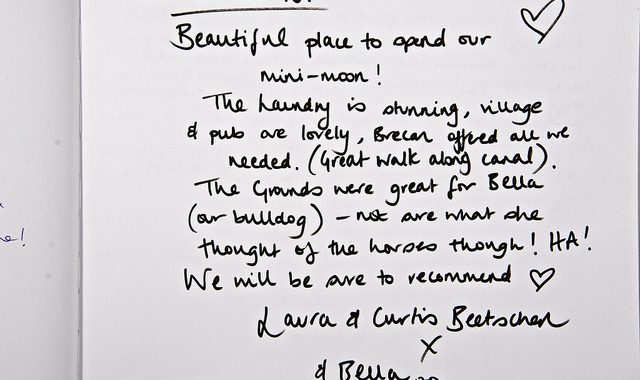 Beautiful place to spend our
mini-moon!
The Laundry is stunning, village
& pub are lovely, Brecon offered all we
needed. (Great walk along canal).
The Grounds were great for Bella
(our bulldog) - not sure what she
thought of the horses though! HA!
We will be sure to recommend ♡
Laura & Curtis Beetschen
x
& Bella